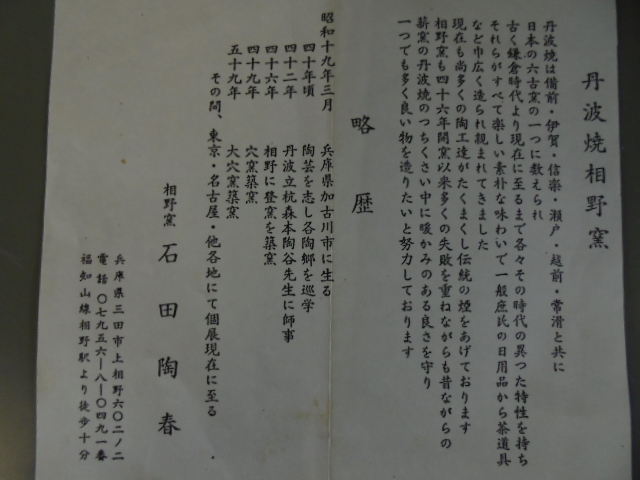 丹波焼相野窯
丹波焼は備前・伊賀・信楽・瀬戸・越前・常滑と共に
日本の六古窯の一つに数えられ
古く鎌倉時代より現在に至るまで各々その時代の異つた特性を持ち
それらがすべて楽しい素朴な味わいで一般庶民の日用品から茶道具
など巾広く造られ親まれてきました
現在も尚多くの陶工達がたくまくし伝統の煙をあげております
相野窯も四十六年開窯以来多くの失敗を重ねながらも昔ながらの
薪窯の丹波焼のつちくさい中に暖かみのある良さを守り
一つでも多く良い物を造りたいと努力しております
略歴
昭和十九年三月 兵庫県加古川市に生る
四十年頃 陶芸を志し各陶郷を巡学
四十二年 丹波立杭森本陶谷先生に師事
四十六年 相野に登窯を築窯
四十九年 穴窯築窯
五十九年 大穴窯築窯
その間、東京・名古屋・他各地にて個展現在に至る
相野窯 石田陶春
兵庫県三田市上相野六〇二ノ二
電話 〇七九五六―八―〇四九一番
福知山線相野駅より徒歩十分